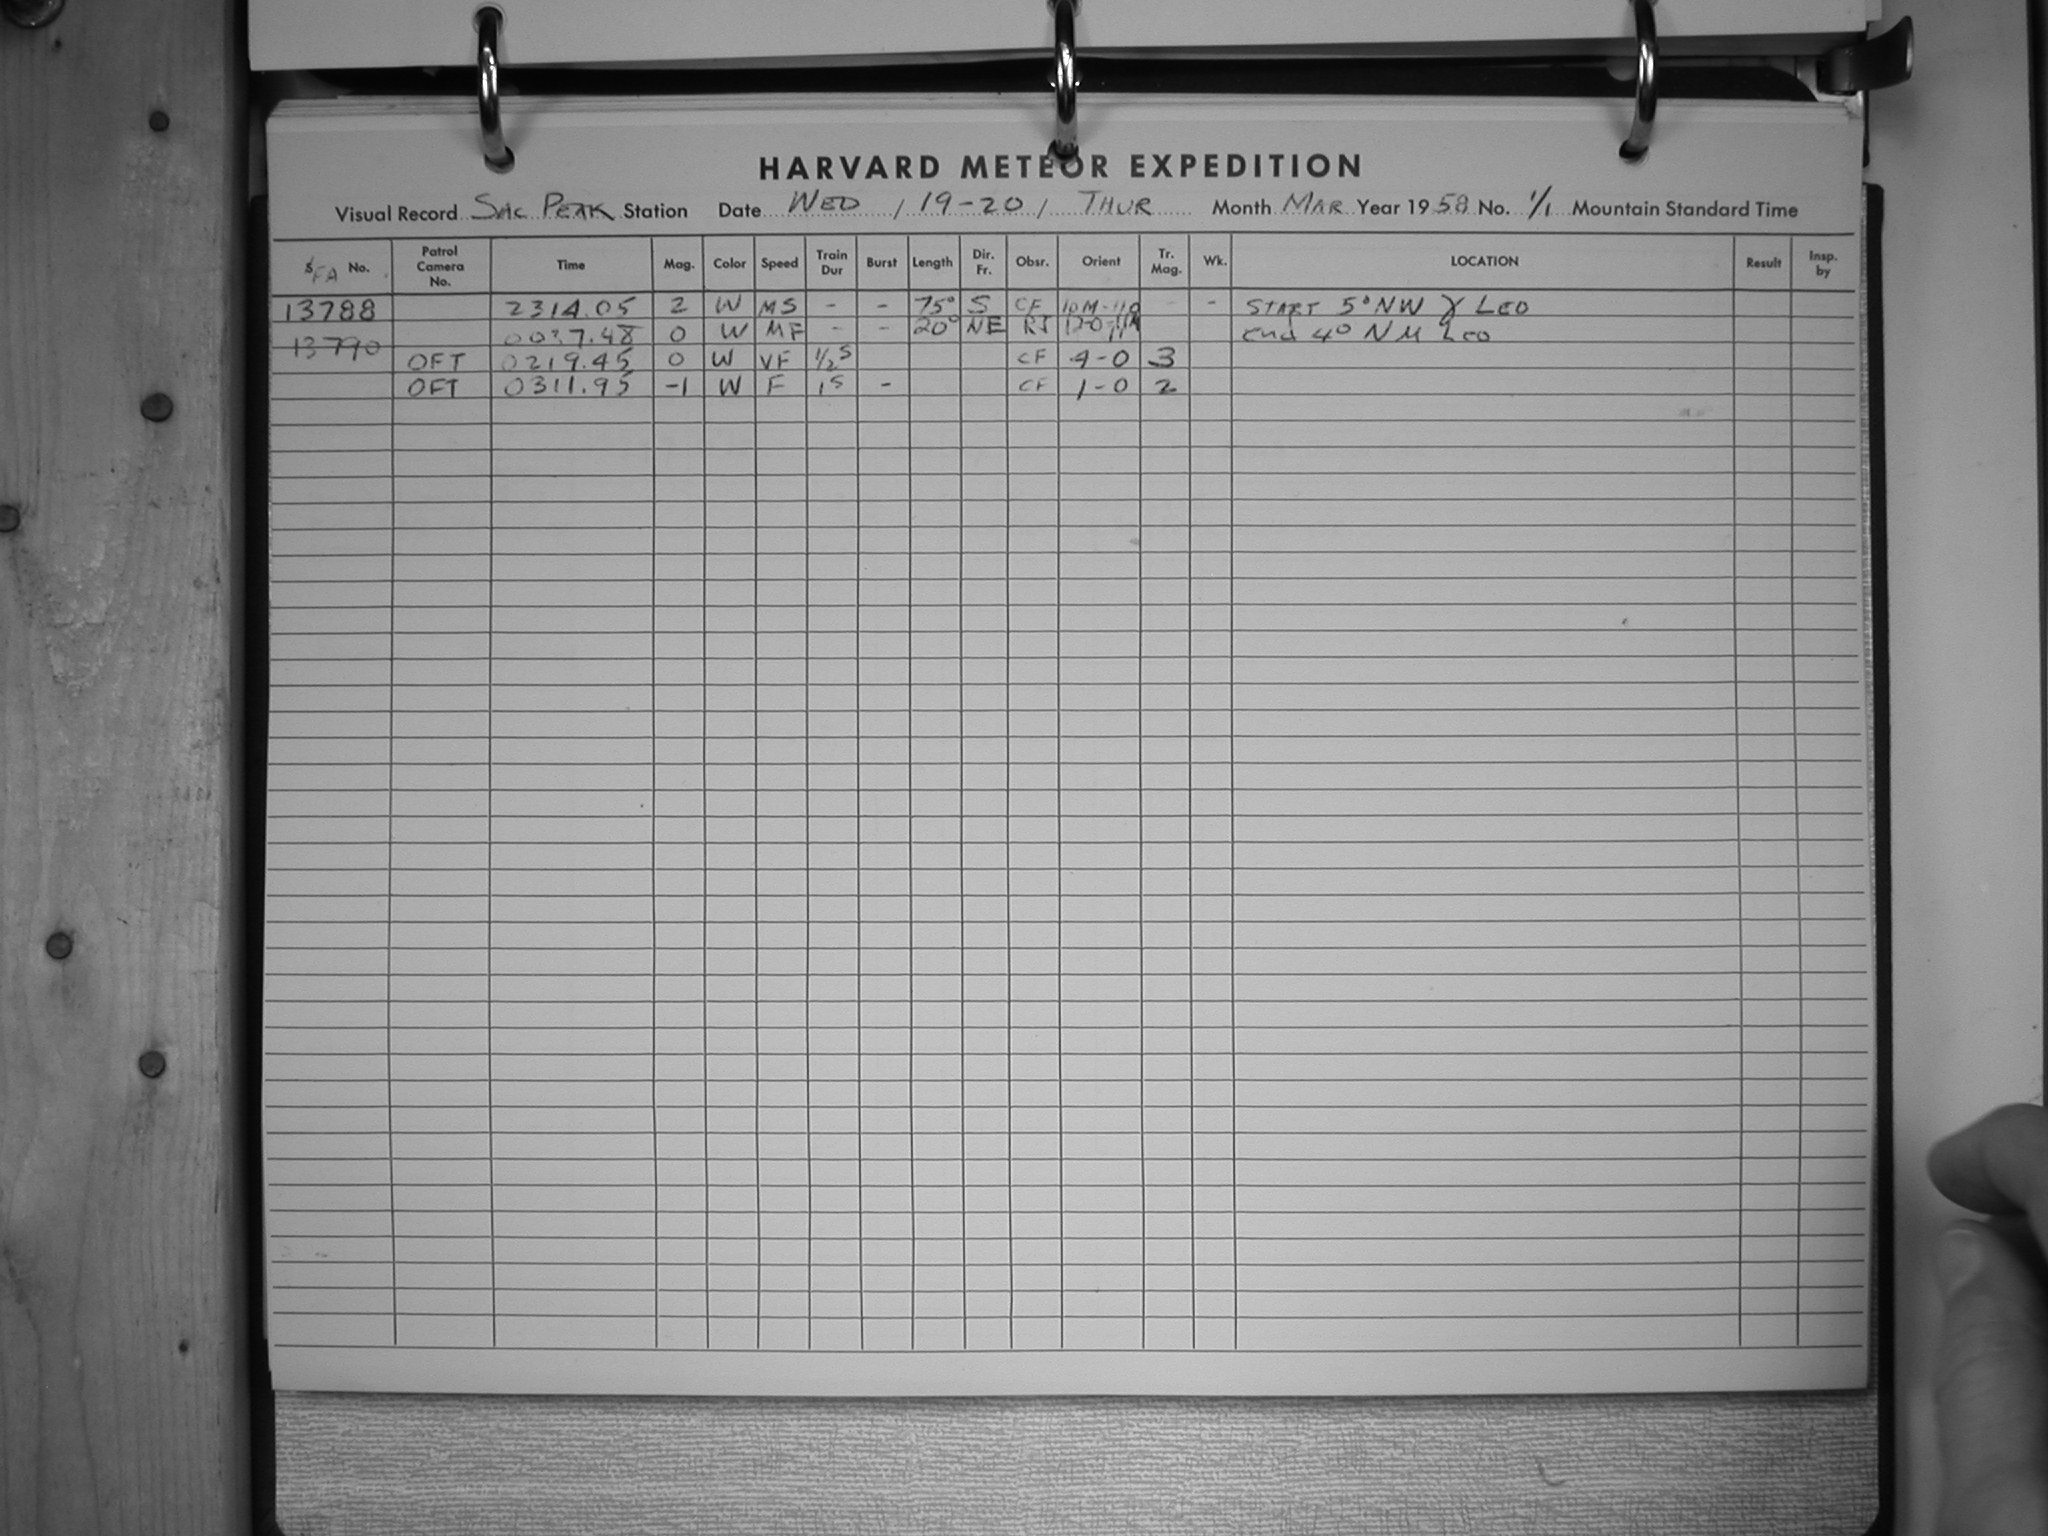 HARVARD METEOR EXPEDITION
Visual Record SAC PEAK Station Date WED / 19-20 / THUR Month MAR Year 1958 No. 1/1 Mountain Standard Time
FA No. Patrol Camera No. Time Mag. Color Speed Train Dur Burst Length Dir. Fr. Obsr. Orient Tr. Mag. Wk. LOCATION Result Insp. by
13788 2314.05 2 W MS - - 75° S CF 10M-110 - START 5° NW γ LEO
13790 0037.48 0 W MF - - 20° NE RJ end 4° N μ Leo
OFT 0219.45 0 W VF 1/2 S CF 4-0 3
OFT 0311.95 -1 W F 1S - CF 1-0 2